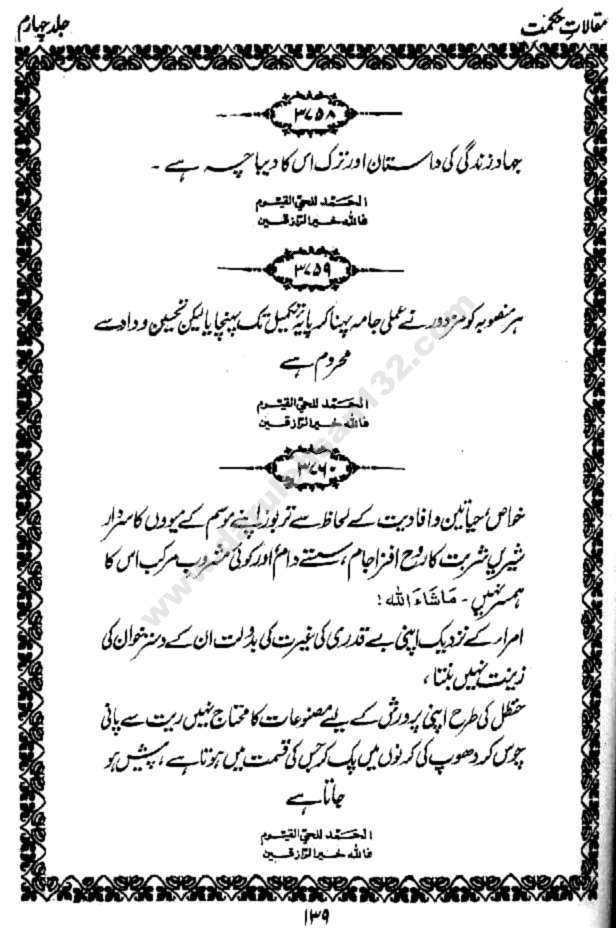 مقالاتِ حکمت
جلد چہارم
۳۷۵۸
جہاد زندگی کی داستان اور ترک اس کا دیباچہ ہے ۔
الحَمَد للحيّ القيّوم
فاللہ خیر الرّازقین
۳۷۵۹
ہر منصوبہ کو مزدور نے عملی جامہ پہنا کر پایۂ تکمیل تک پہنچایا لیکن تحسین و داد سے
محروم ہے
الحَمَد للحيّ القيّوم
فاللہ خیر الرّازقین
۳۷۶۰
خواص حیاتین و افادیت کے لحاظ سے تربوز اپنے موسم کے میووں کا سردار
شیریں شربت کا روح افزا جام ، سستے دام اور کوئی مشروب مرکب اس کا
ہمسر نہیں ۔ مَاشَاءَ الله !
امراء کے نزدیک اپنی بے قدری کی غیرت کی بدولت ان کے دسترخوان کی
زینت نہیں بنتا ،
حنظل کی طرح اپنی پرورش کے لیے مصنوعات کا محتاج نہیں ریت سے پانی
چوس کر دھوپ کی کرنوں میں پک کر جس کی قسمت میں ہوتا ہے ، پیش ہو
جاتا ہے
الحَمَد للحيّ القيّوم
فاللہ خیر الرّازقین
۱۳۹